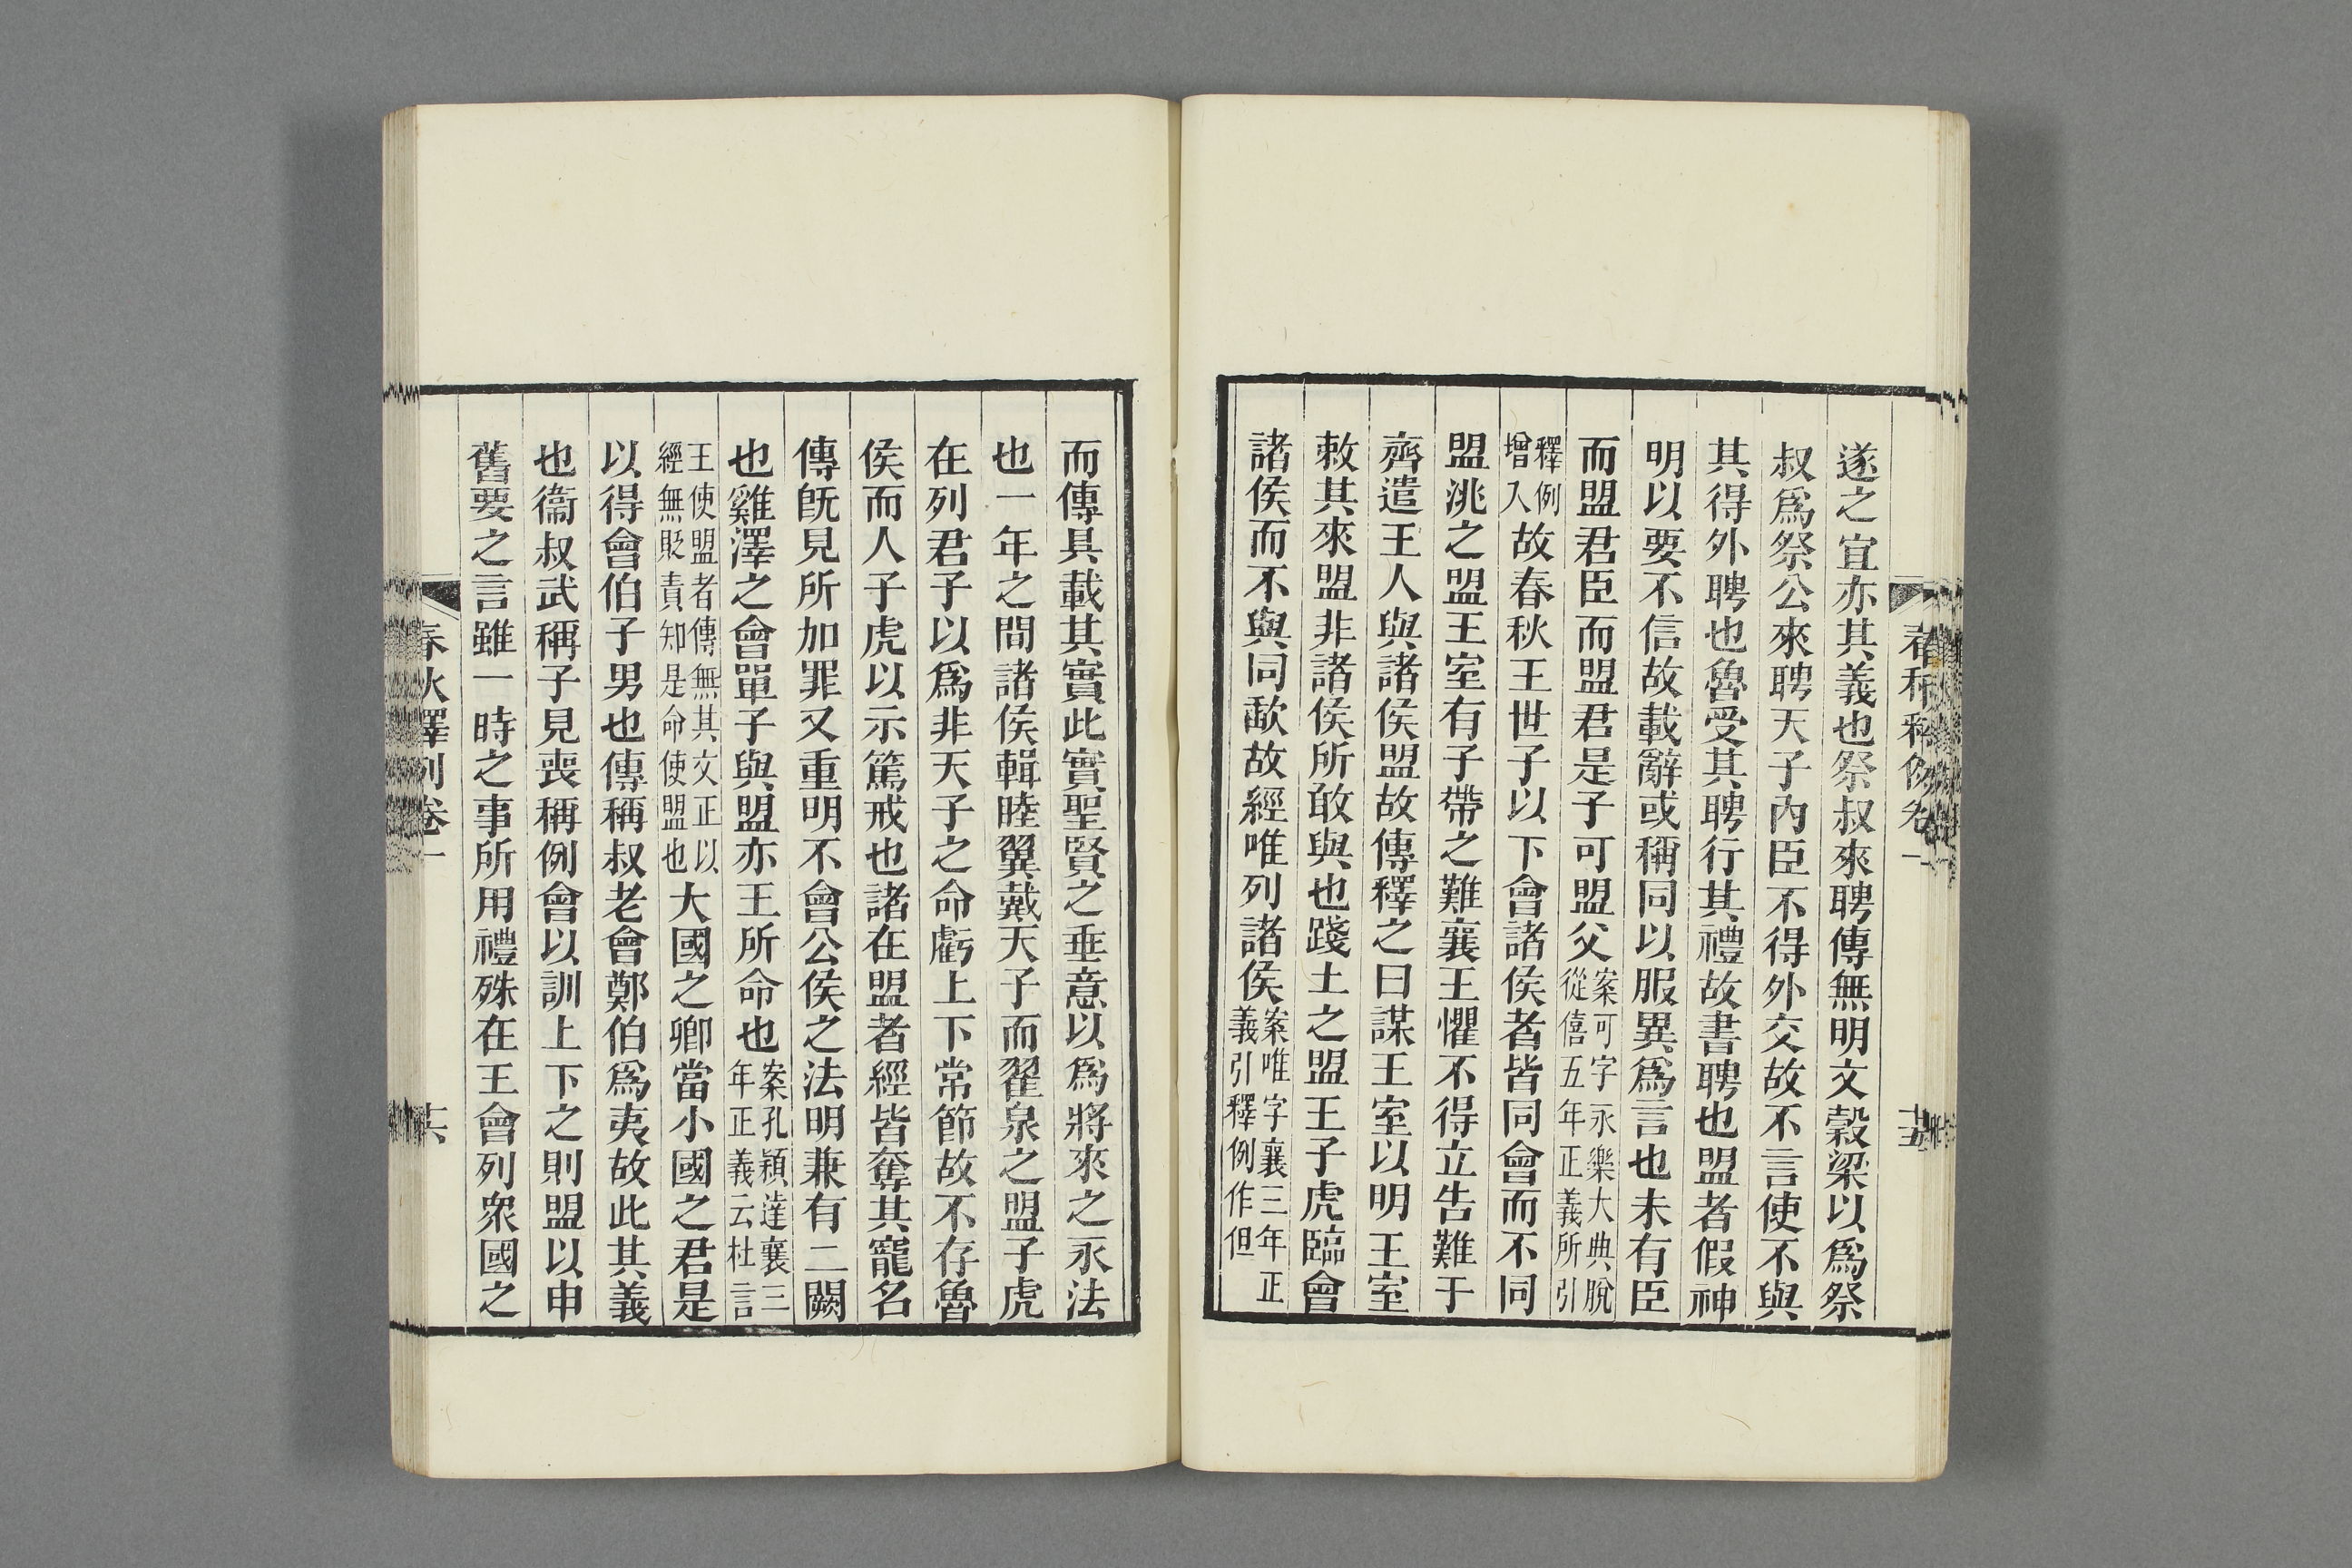 遂之宜亦其義也祭叔來聘傳無明文穀梁以爲祭
叔爲祭公來聘天子內臣不得外交故不言使不與
其得外聘也魯受其聘行其禮故書聘也盟者假神
明以要不信故載辭或稱同以服異爲言也未有臣
而盟君臣而盟君是子可盟父案可字永樂大典脫從僖五年正義所引
釋例增入故春秋王世子以下會諸侯者皆同會而不同
盟洮之盟王室有子帶之難襄王懼不得立告難于
齊遣王人與諸侯盟故傳釋之曰謀王室以明王室
敕其來盟非諸侯所敢與也踐土之盟王子虎臨會
諸侯而不與同歃故經唯列諸侯案唯字襄三年正義引釋例作但
春秋釋例卷一
十五
而傳具載其實此實聖賢之垂意以爲將來之永法
也一年之間諸侯輯睦翼戴天子而翟泉之盟子虎
在列君子以爲非天子之命虧上下常節故不存魯
侯而人子虎以示篤戒也諸在盟者經皆奪其寵名
傳旣見所加罪又重明不會公侯之法明兼有二闕
也雞澤之會單子與盟亦王所命也案孔穎達襄三年正義云杜言
王使盟者傳無其文正以經無貶責知是命使盟也大國之卿當小國之君是
以得會伯子男也傳稱叔老會鄭伯爲夷故此其義
也衞叔武稱子見喪稱例會以訓上下之則盟以申
舊要之言雖一時之事所用禮殊在王會列衆國之
春秋釋例卷一
十六